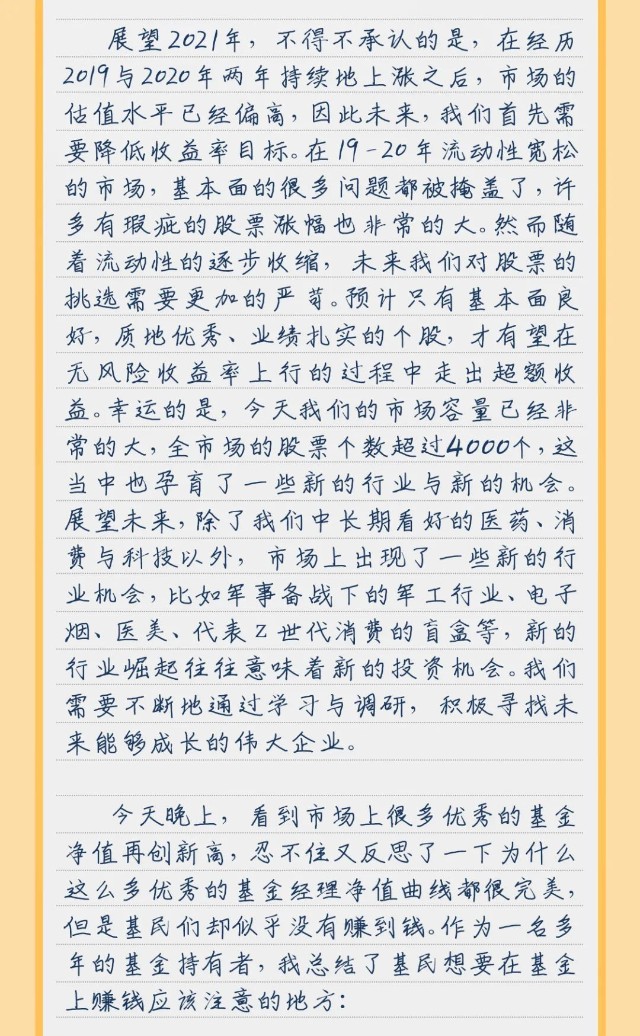 展望2021年，不得不承认的是，在经历
2019与2020年两年持续地上涨之后，市场的
估值水平已经偏高，因此未来，我们首先需
要降低收益率目标。在19-20年流动性宽松
的市场，基本面的很多问题都被掩盖了，许
多有瑕疵的股票涨幅也非常的大。然而随
着流动性的逐步收缩，未来我们对股票的
挑选需要更加的严苛。预计只有基本面良
好，质地优秀、业绩扎实的个股，才有望在
无风险收益率上行的过程中走出超额收
益。幸运的是，今天我们的市场容量已经非
常的大，全市场的股票个数超过4000个，这
当中也孕育了一些新的行业与新的机会。
展望未来，除了我们中长期看好的医药、消
费与科技以外，市场上出现了一些新的行
业机会，比如军事备战下的军工行业、电子
烟、医美、代表Z世代消费的盲盒等，新的
行业崛起往往意味着新的投资机会。我们
需要不断地通过学习与调研，积极寻找未
来能够成长的伟大企业。
今天晚上，看到市场上很多优秀的基金
净值再创新高，忍不住又反思了一下为什么
这么多优秀的基金经理净值曲线都很完美，
但是基民们却似乎没有赚到钱。作为一名多
年的基金持有者，我总结了基民想要在基金
上赚钱应该注意的地方：